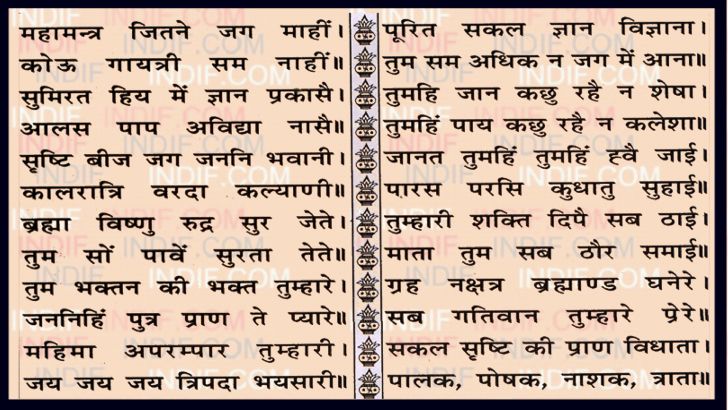 महामन्त्र जितने जग माहीं।
कोऊ गायत्री सम नाहीं॥
सुमिरत हिय में ज्ञान प्रकासै।
आलस पाप अविद्या नासै॥
सृष्टि बीज जग जननि भवानी।
कालरात्रि वरदा कल्याणी॥
ब्रह्मा विष्णु रुद्र सुर जेते।
तुम सों पावें सुरता तेते॥
तुम भक्तन की भक्त तुम्हारे।
जननिहिं पुत्र प्राण ते प्यारे॥
महिमा अपरम्पार तुम्हारी।
जय जय जय त्रिपदा भयसारी॥
पूरित सकल ज्ञान विज्ञाना।
तुम सम अधिक न जग में आना॥
तुमहि जान कछु रहै न शेषा।
तुमहिं पाय कछु रहै न कलेशा॥
जानत तुमहिं तुमहिं ह्वै जाई।
पारस परसि कुधातु सुहाई॥
तुम्हारी शक्ति दिपै सब ठाई।
माता तुम सब ठौर समाई॥
ग्रह नक्षत्र ब्रह्माण्ड घनेरे।
सब गतिवान तुम्हारे प्रेरे॥
सकल सृष्टि की प्राण विधाता।
पालक, पोषक, नाशक, त्राता॥